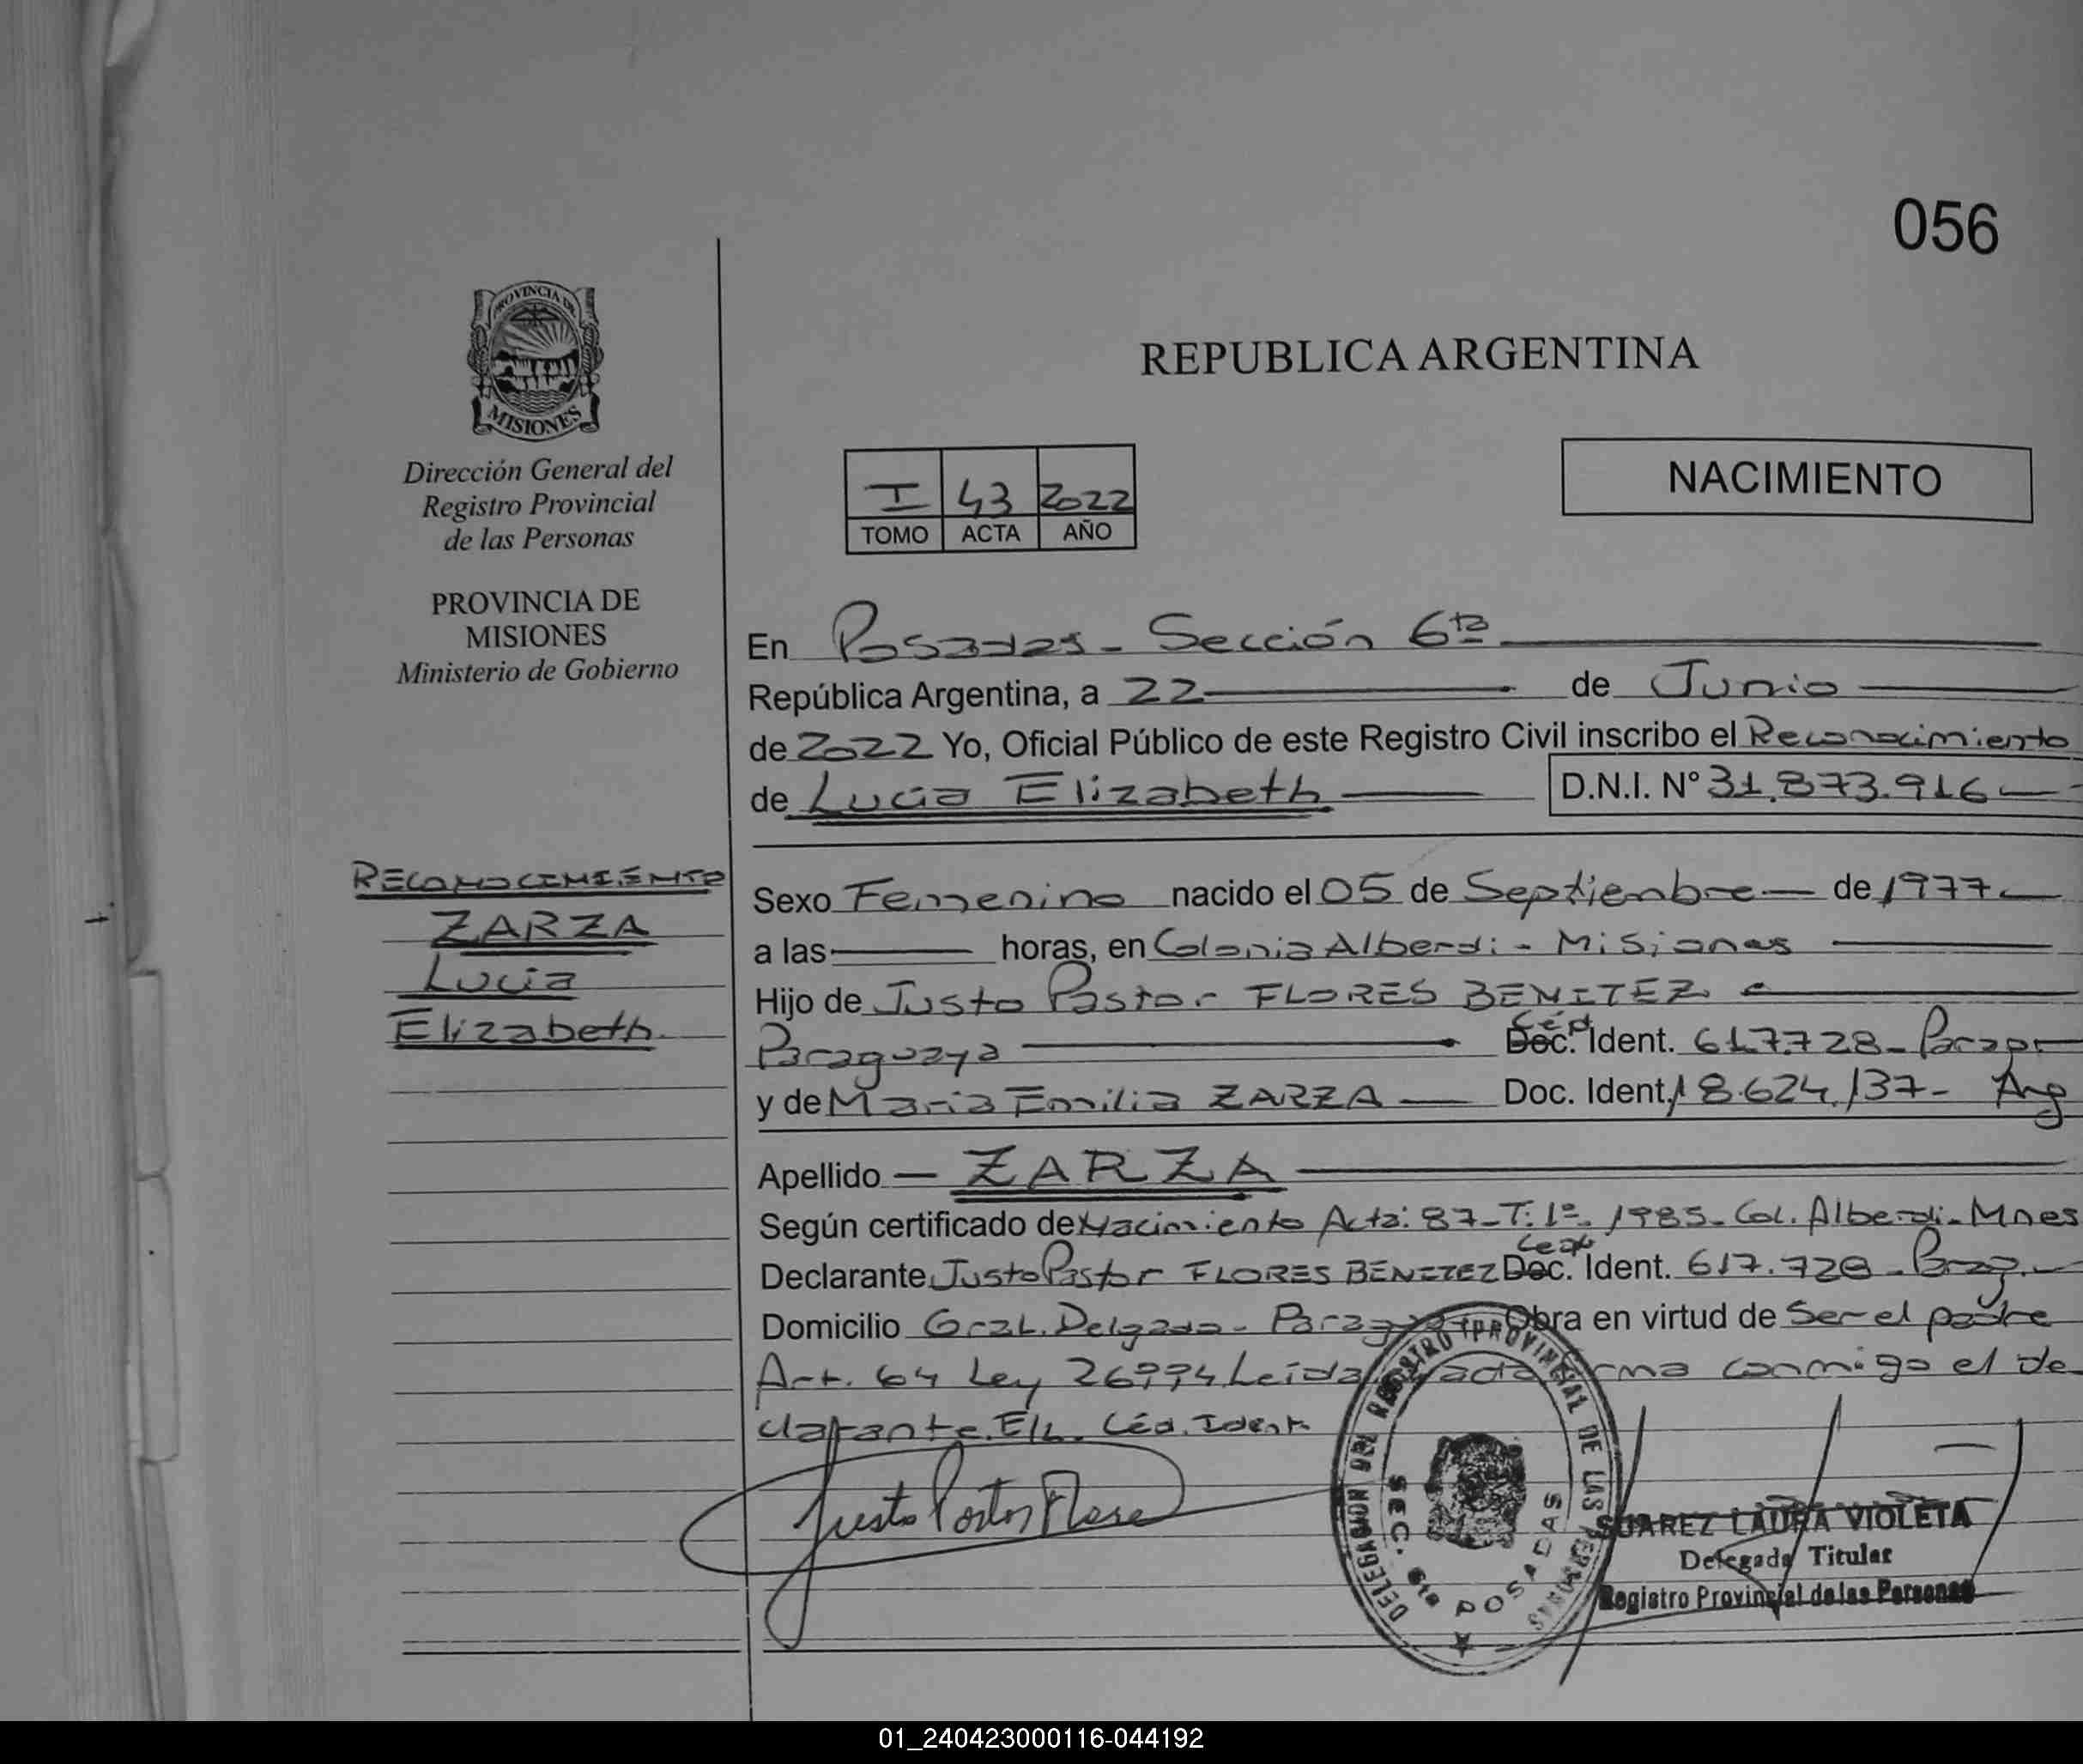 056
PROVINCIA DE
MISIONES
Dirección General del
Registro Provincial
de las Personas
PROVINCIA DE
MISIONES
Ministerio de Gobierno
RECONOCIMIENTO
ZARZA
Lucia
Elizabeth
REPUBLICA ARGENTINA
I 43 2022
TOMO ACTA AÑO
NACIMIENTO
En Posadas - Sección 6ta
República Argentina, a 22 de Junio
de 2022 Yo, Oficial Público de este Registro Civil inscribo el Reconocimiento
de Lucia Elizabeth D.N.I. Nº 31.873.916
Sexo Femenino nacido el 05 de Septiembre de 1977
a las horas, en Colonia Alberdi - Misiones
Hijo de Justo Pastor FLORES BENITEZ
Paraguaya Céd Doc. Ident. 617.728 -
y de Maria Emilia ZARZA Doc. Ident. 18.624.137 - Arg
Apellido ZARZA
Según certificado de Nacimiento Acta: 87 - T: 1º - 1985 - Col. Alberdi - Mnes
Declarante Justo Pastor FLORES BENITEZ Doc. Ident. 617.728 - Parag.
Domicilio Gral. Delgado - Obra en virtud de Ser el padre
Art. 64 Ley 26994 Leída acta conmigo el de
clarante. Céd. Ident
Justo Pastor Flores
DELEGACION DEL REGISTRO PROVINCIAL DE LAS PERSONAS
SEC. 6ta POSADAS
SUAREZ LAURA VIOLETA
Delegada Titular
Registro Provincial de las Personas
01_240423000116-044192